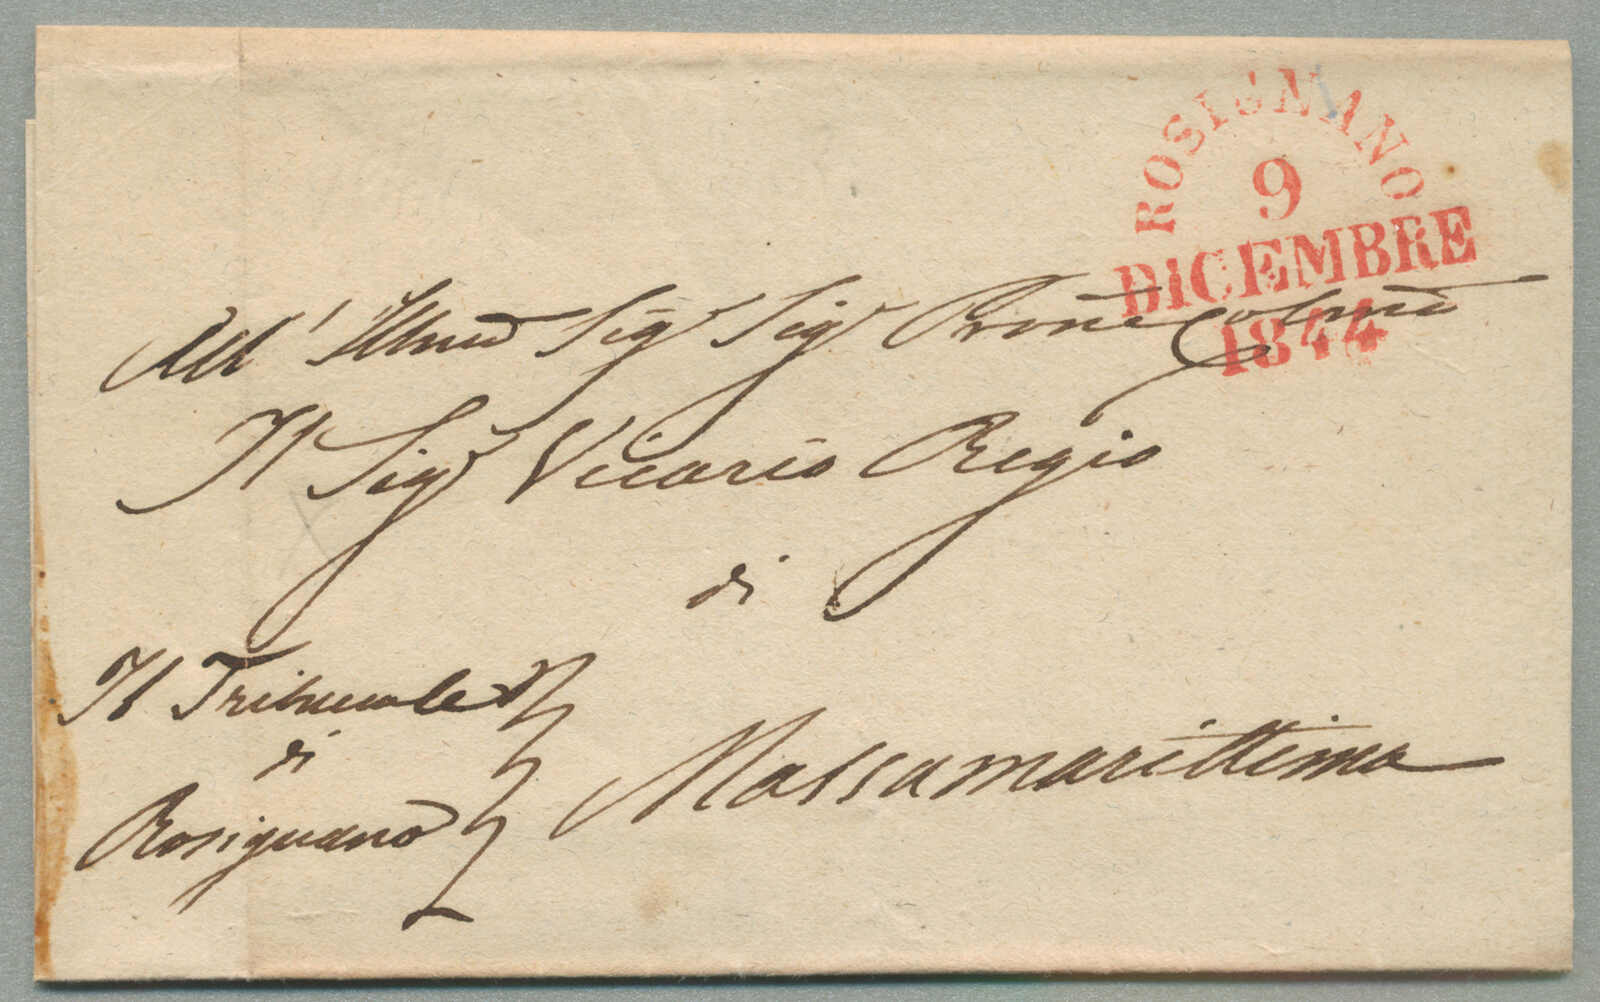 ROSIGNANO
9
DICEMBRE
1844
All' Illmo Sigr Sigr Prone Colmo
Il Sigr Vicario Regio
di
Massamarittima
Il Tribunale
di
Rosignano